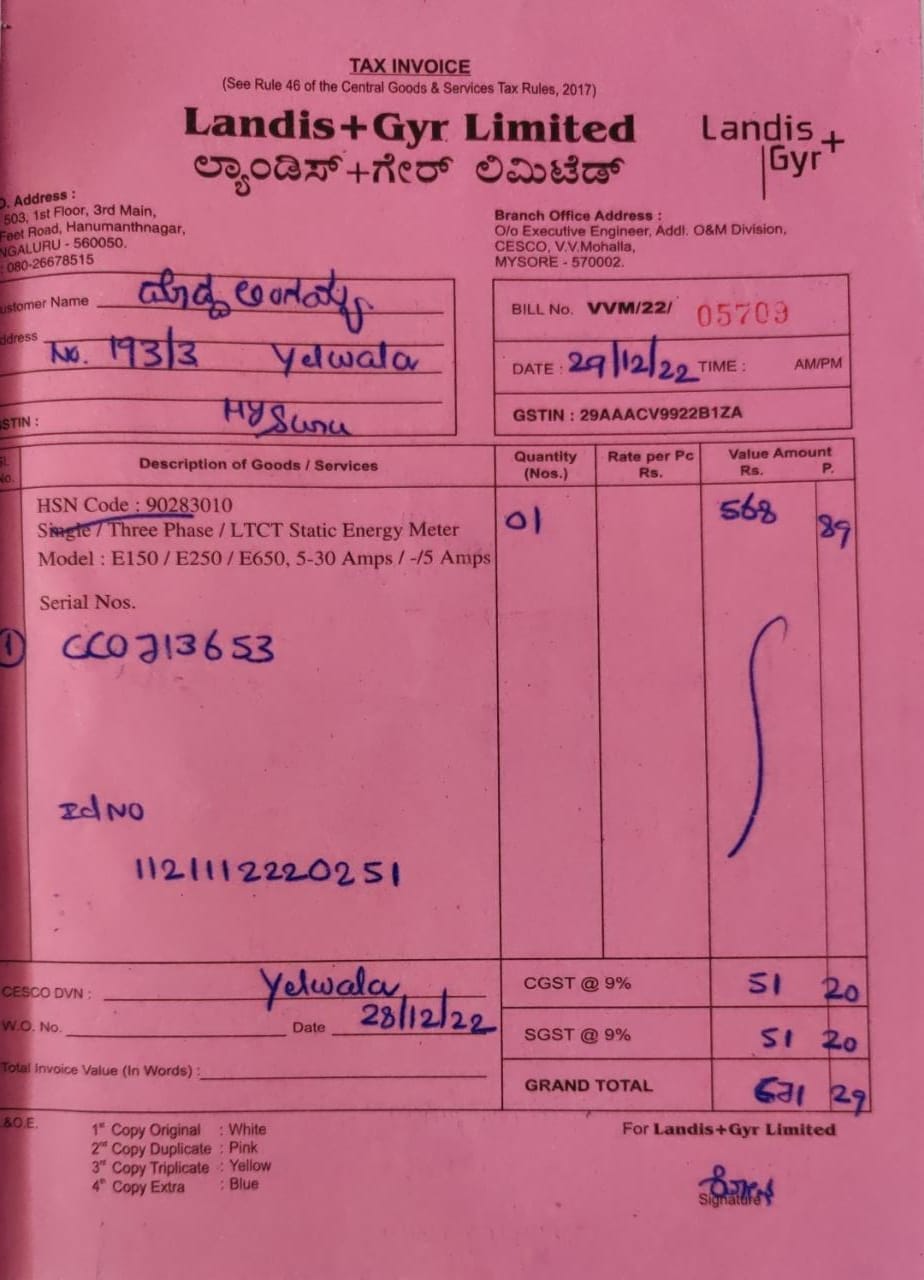 TAX INVOICE
(See Rule 46 of the Central Goods & Services Tax Rules, 2017)
Landis+Gyr Limited
ಲ್ಯಾಂಡಿಸ್+ಗೇರ್ ಲಿಮಿಟೆಡ್
Landis+
Gyr
Address :
503, 1st Floor, 3rd Main,
Feet Road, Hanumanthnagar,
NGALURU - 560050.
: 080-26678515
Branch Office Address :
O/o Executive Engineer, Addl. O&M Division,
CESCO, V.V.Mohalla,
MYSORE - 570002.
ustomer Name
ddress No. 193/3 Yelwala
STIN : Mysuru
BILL No. VVM/22/ 05709
DATE : 29/12/22 TIME : AM/PM
GSTIN : 29AAACV9922B1ZA
No. Description of Goods / Services Quantity (Nos.) Rate per Pc Rs. Value Amount Rs. P.
HSN Code : 90283010 01 568 89
Single / Three Phase / LTCT Static Energy Meter
Model : E150 / E250 / E650, 5-30 Amps / -/5 Amps
Serial Nos.
1 CC0713653
Id NO
1121112220251
CESCO DVN : Yelwala
W.O. No. Date 28/12/22
Total Invoice Value (In Words) :
CGST @ 9% 51 20
SGST @ 9% 51 20
GRAND TOTAL 671 29
&O.E.
1st Copy Original : White
2nd Copy Duplicate : Pink
3rd Copy Triplicate : Yellow
4th Copy Extra : Blue
For Landis+Gyr Limited
Signature